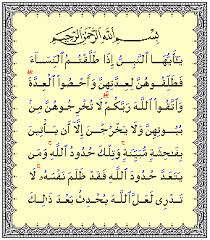 بِسْمِ ٱللَّهِ ٱلرَّحْمَٰنِ ٱلرَّحِيمِ
يَٰٓأَيُّهَا ٱلنَّبِىُّ إِذَا طَلَّقْتُمُ ٱلنِّسَآءَ
فَطَلِّقُوهُنَّ لِعِدَّتِهِنَّ وَأَحْصُوا۟ ٱلْعِدَّةَ
وَٱتَّقُوا۟ ٱللَّهَ رَبَّكُمْ لَا تُخْرِجُوهُنَّ مِنۢ
بُيُوتِهِنَّ وَلَا يَخْرُجْنَ إِلَّآ أَن يَأْتِينَ
بِفَٰحِشَةٍ مُّبَيِّنَةٍ وَتِلْكَ حُدُودُ ٱللَّهِ وَمَن
يَتَعَدَّ حُدُودَ ٱللَّهِ فَقَدْ ظَلَمَ نَفْسَهُۥ لَا
تَدْرِى لَعَلَّ ٱللَّهَ يُحْدِثُ بَعْدَ ذَٰلِكَ